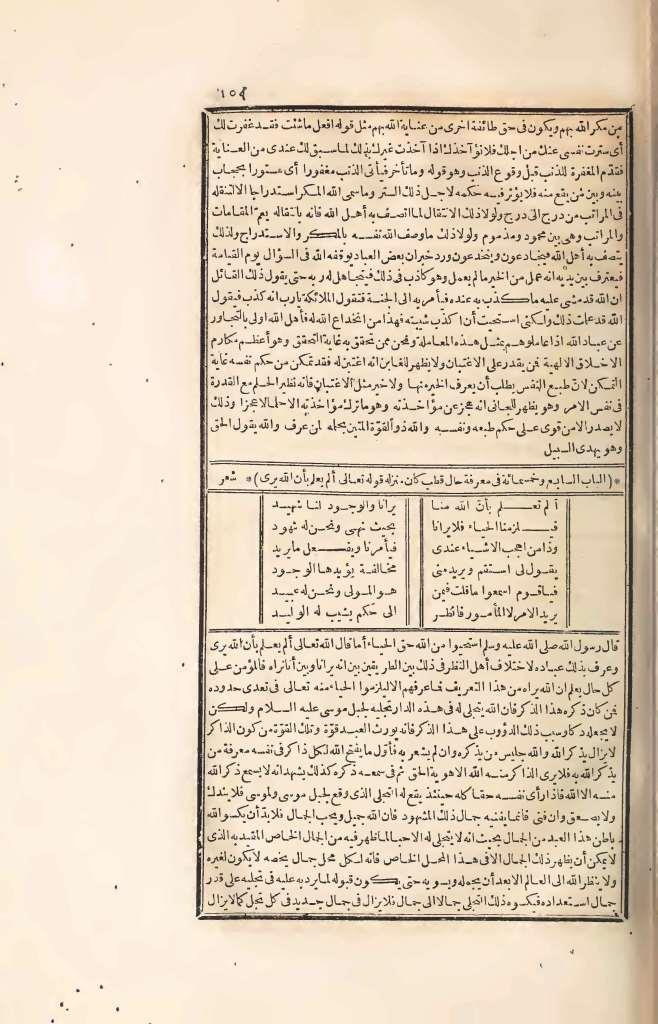 ١٥٩
من مكر الله بهم ويكون فى حق طائفة اخرى من عناية الله بهم مثل قوله افعل ماشئت فقد غفرت لك
أى سترت نفسى عنك من اجلك فلا نؤآخذك اذا آخذت غيرك بذلك لما سبق لك عندى من العناية
فتقدم المغفرة للذنب قبل وقوع الذنب وهو قوله وما تأخر فيأتى الذنب مغفورا أى مستورا بحجاب
بينه وبين من يقع منه فلا يؤثر فيه حكمه لاجل ذلك الستر وما سمى الله المكر استدراجا الا لتنقله
فى المراتب من درج الى درج ولولا ذلك الانتقال لما اتصف به أهل الله فانه بانتقاله يعم المقامات
والمراتب وهى بين محمود ومذموم ولولا ذلك ما وصف الله نفسه بالمكر والاستدراج ولذلك
يتصف به أهل الله فيخادعون وينخدعون ورد خبر ان بعض العباد يوقفه الله فى السؤال يوم القيامة
فيعترف بين يديه انه عمل من الخير ما لم يعمل وهو كاذب فى ذلك فيتجاهل له ربه حتى يقول ذلك القائل
ان الله قد مشى عليه ما كذب به عنده فيأمر به الى الجنة فتقول الملائكة يا رب انه كذب فيقول
الله قد علمت ذلك ولكنى استحييت أن اكذب شيبته فهذا من انخداع الله له فأهل الله اولى بالتجاوز
عن عباد الله اذا عاملوهم بمثل هذه المعاملة ونحن ممن تحقق به غاية التحقق وهو أعظم مكارم
الاخلاق الالهية فمن يقدر على الاغتبان ولا يظهر للغابن انه اغتبن له فقد تمكن من حكم نفسه غاية
التمكن لان طبع النفس يطلب أن يعرف الخير منها ولا خير مثل الاغتبان فانه نظير الحلم مع القدرة
فى نفس الامر وهو يظهر للجانى انه عجز عن مؤاخذته وهو ما ترك مؤاخذته الا حلما لا عجزا وذلك
لا يصدر الا من قوى على حكم طبعه ونفسه والله ذو القوة المتين بحلمه لمن عرف والله يقول الحق
وهو يهدى السبيل
* (الباب السابع وخمسمائة فى معرفة حال قطب كان منزله قوله تعالى ألم يعلم بأن الله يرى) * شعر
ألم تعلم بأن الله منا يرانا والوجود لنا شهيد
فيلزمنا الحياء فلا يرانا بحيث نهى ونحن له شهود
وذا من اعجب الاشياء عندى فيأمرنا ويفعل ما يريد
يقول لى استقم ويريد منى مخالفة يؤيدها الوجود
فيا قوم اسمعوا ما قلت فيمن هو المولى ونحن له عبيد
يريد الامر لا المأمور فانظر الى حكم يشيب له الوليد
قال رسول الله صلى الله عليه وسلم استحيوا من الله حق الحياء أما قال الله تعالى ألم يعلم بأن الله يرى
وعرف بذلك عباده لاختلاف أهل النظر فى ذلك بين الطريقين بين انه يرانا وبين أنا نراه فالمؤمن على
كل حال يعلم ان الله يراه من هذا التعريف فما عرفهم الا ليلزموا الحياء منه تعالى فى تعدى حدوده
فمن كان ذكره هذا الذكر فان الله يتجلى له فى هذه الدار تجليه لجبل موسى عليه السلام ولكن
لا يجعله دكا وسبب ذلك الدؤوب على هذا الذكر فانه يورث العبد قوة وتلك القوة من كون الذاكر
لا يزال يذكر الله والله جليس من يذكره وان لم يشعر به فأول ما يفتح الله لكل ذاكر فى نفسه معرفة من
يذكر الله به فلا يرى الذاكر منه الله الا هوية الحق ثم فى سمعه ذكره كذلك يشهد انه لا يسمع ذكر الله
منه الا الله فاذا رأى نفسه حقا كله حينئذ يقع له التجلى الذى وقع لجبل موسى ولموسى فلا يندك
ولا يصعق وان فنى فانما يفنيه جمال ذلك المشهود فان الله جميل ويحب الجمال فلا بد أن يكسو الله
باطن هذا العبد من الجمال بحيث انه لا يتجلى له الا حبا لما ظهر فيه من الجمال الخاص المقيد به الذى
لا يمكن أن يظهر ذلك الجمال الا فى هذا المحل الخاص فانه لكل محل جمال يخصه لا يكون لغيره
ولا ينظر الله الى العالم الا بعد أن يجمله ويسويه حتى يكون قبوله لما يرد به عليه فى تجليه على قدر
جمال استعداده فيكسوه ذلك التجلى جمالا الى جمال فلا يزال فى جمال جديد فى كل تجل كما لا يزال